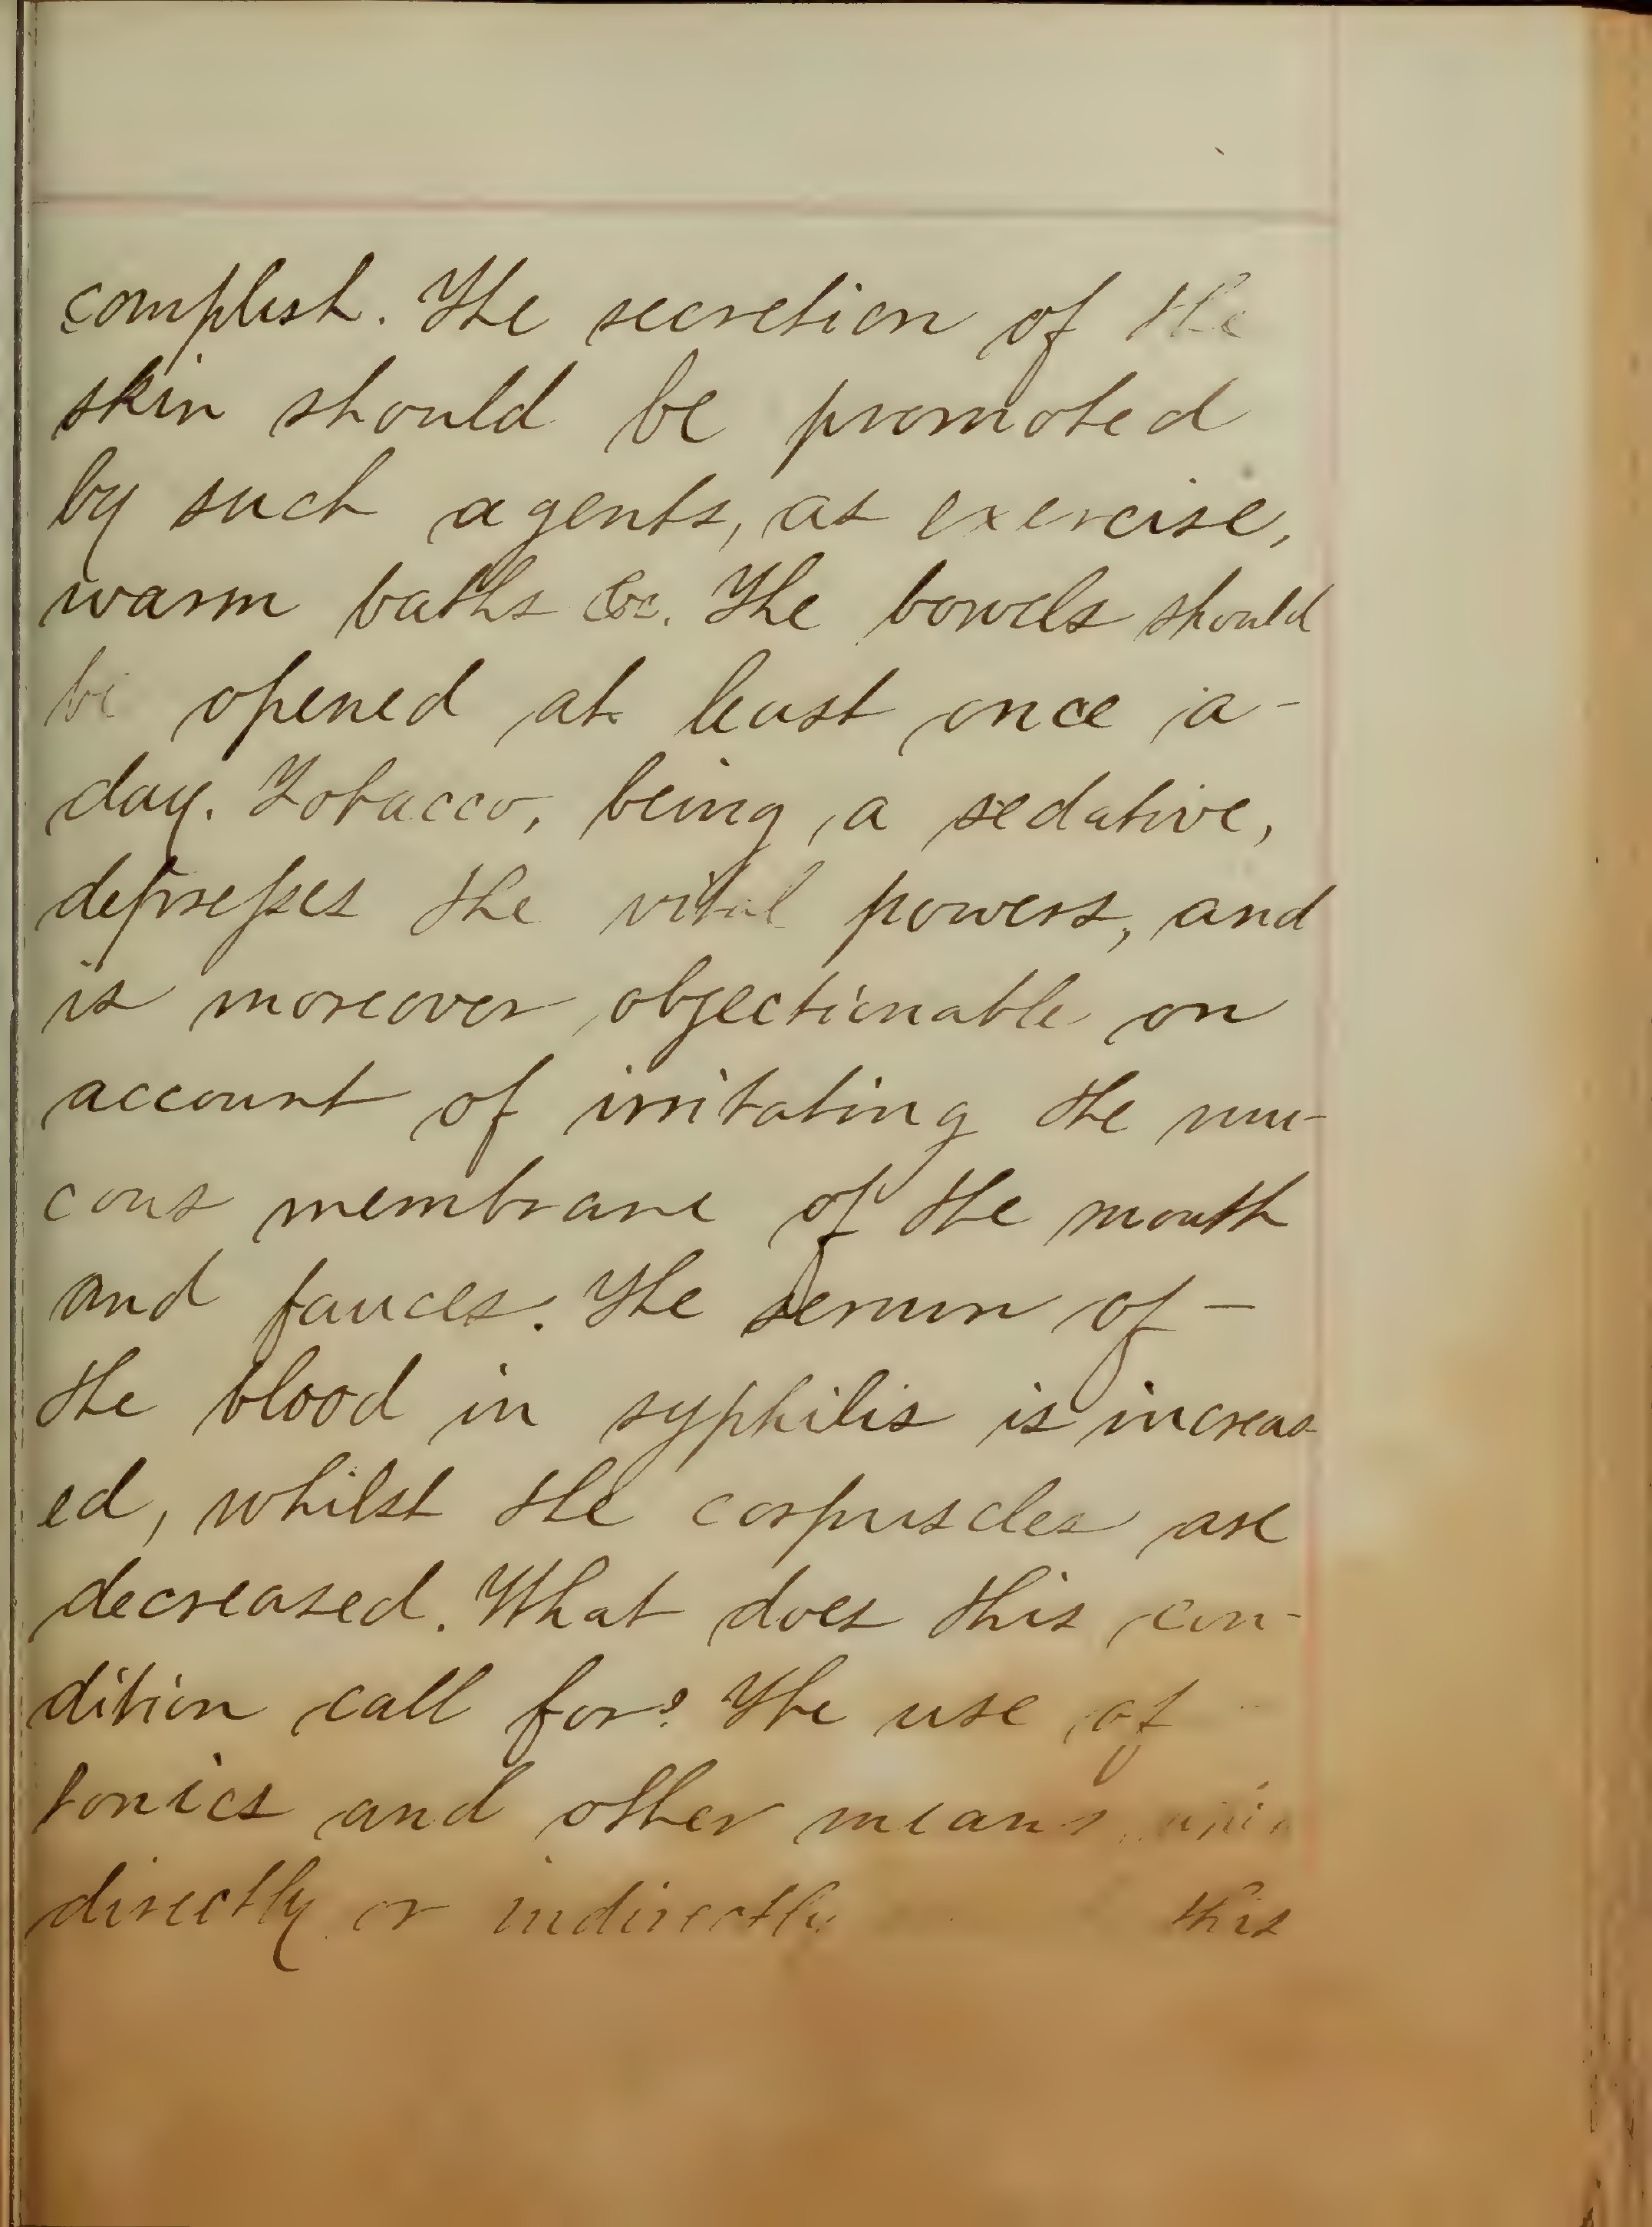 complish. The secretion of the
skin should be promoted
by such agents, as exercise,
warm baths &c. The bowels should
be opened at least once a-
day. Tobacco, being a sedative,
depresses the vital powers, and
is moreover objectionable on
account of irritating the mu-
cous membrane of the mouth
and fauces. The serum of-
the blood in syphilis is increas-
ed, whilst the corpuscles are
decreased. What does this con-
dition call for? The use of
tonics and other means
directly or indirectly this